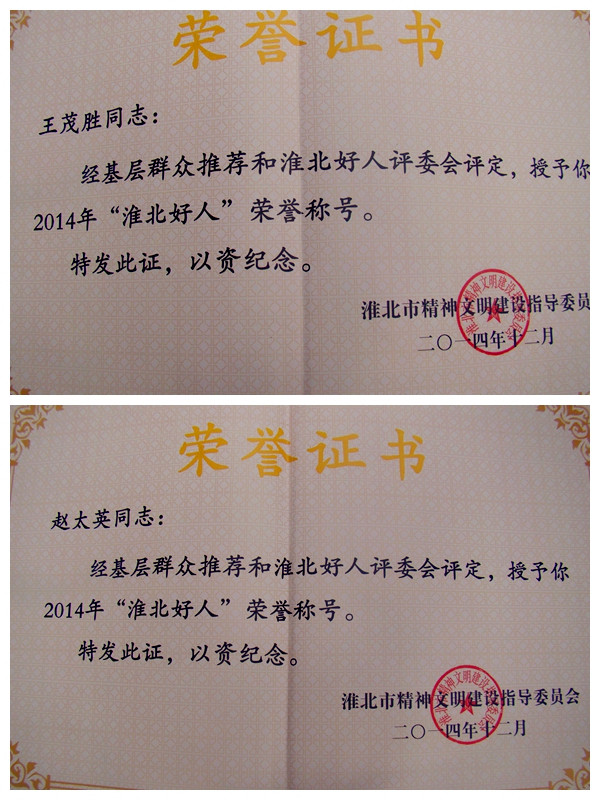 荣誉证书
王茂胜同志：
经基层群众推荐和淮北好人评委会评定，授予你
2014年“淮北好人”荣誉称号。
特发此证，以资纪念。
淮北市精神文明建设指导委员
二〇一四年十二月
荣誉证书
赵太英同志：
经基层群众推荐和淮北好人评委会评定，授予你
2014年“淮北好人”荣誉称号。
特发此证，以资纪念。
淮北市精神文明建设指导委员会
二〇一四年十二月